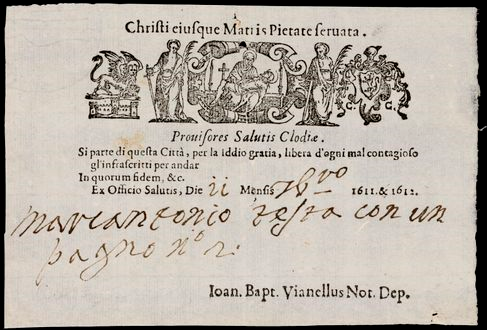 Christi eiusque Matris Pietate seruata.
C. G.
Prouisores Salutis Clodiæ.
Si parte di questa Città, per la iddio gratia, libera d'ogni mal contagioso
gl'infrascritti per andar
In quorum fidem, &c.
Ex Officio Salutis, Die ii Mensis 7bro 1611. & 1612.
Marcantonio testa con un
pagno nº 2.
Ioan. Bapt. Vianellus Not. Dep.